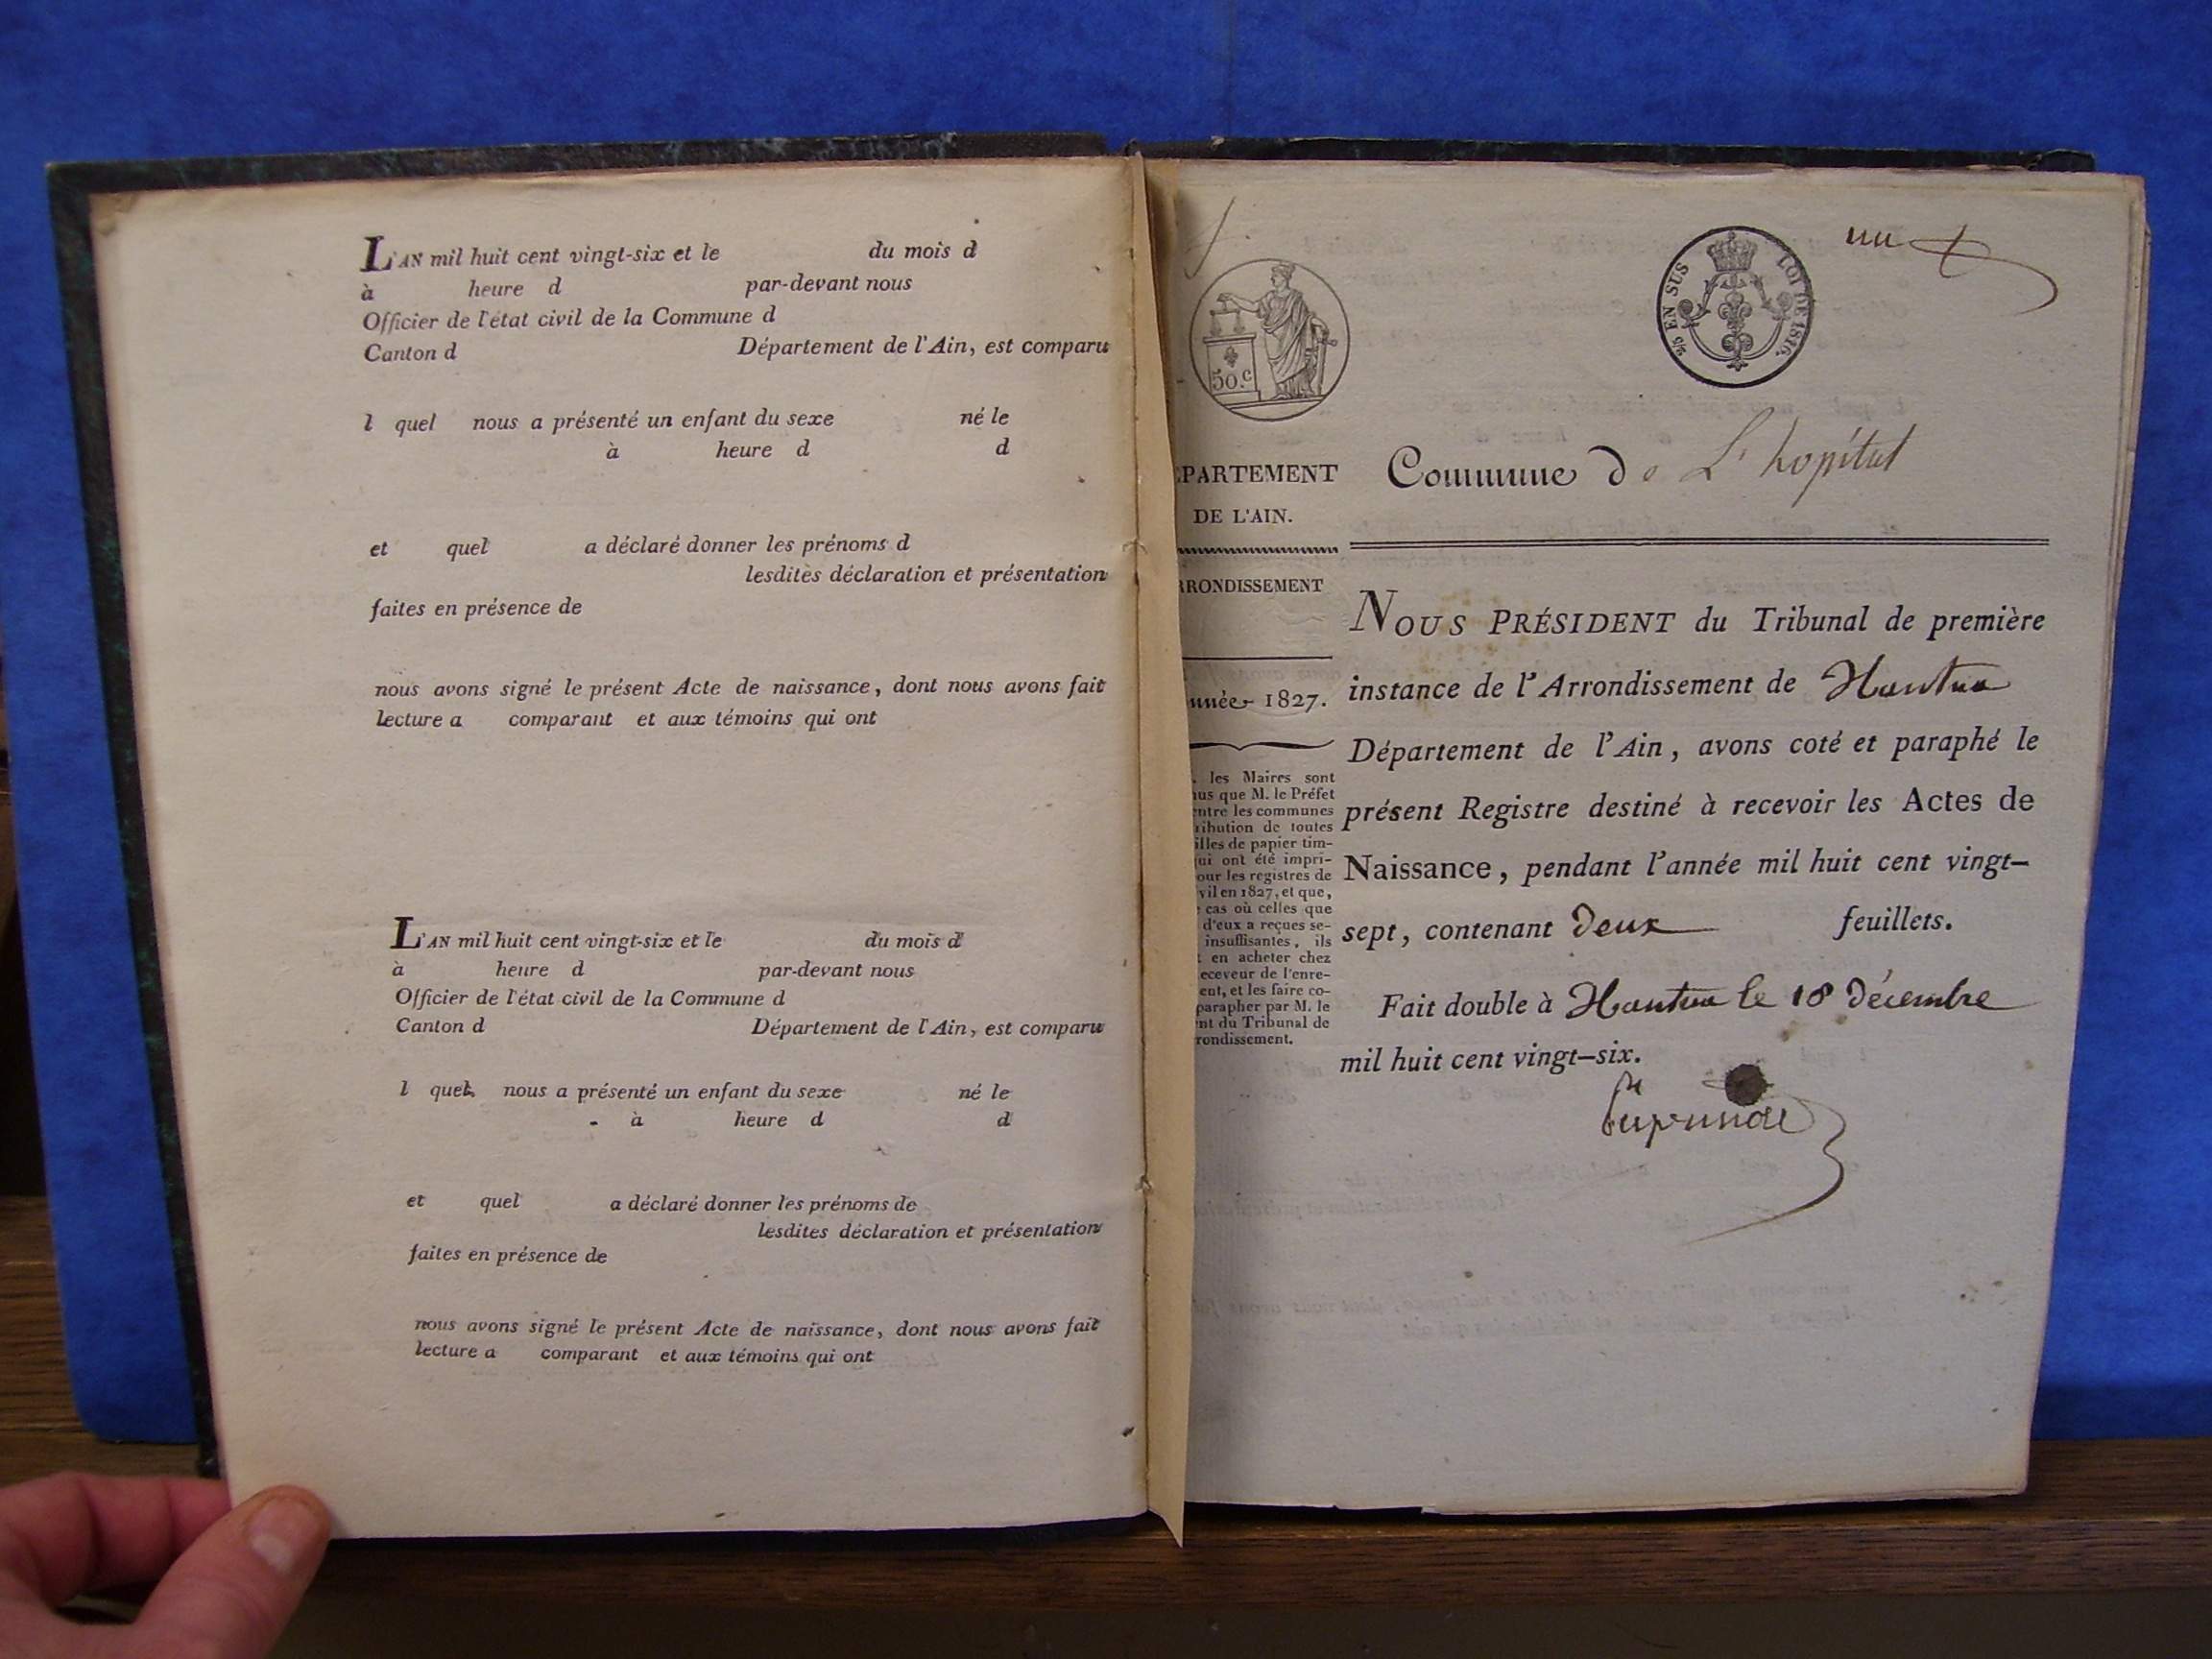 L'AN mil huit cent vingt-six et le du mois d
à heure d par-devant nous
Officier de l'état civil de la Commune d
Canton d Département de l'Ain, est comparu
l quel nous a présenté un enfant du sexe né le
à heure d d
et quel a déclaré donner les prénoms d
lesdites déclaration et présentation
faites en présence de
nous avons signé le présent Acte de naissance, dont nous avons fait
lecture a comparant et aux témoins qui ont
L'AN mil huit cent vingt-six et le du mois d
à heure d par-devant nous
Officier de l'état civil de la Commune d
Canton d Département de l'Ain, est comparu
l quel nous a présenté un enfant du sexe né le
à heure d d
et quel a déclaré donner les prénoms de
lesdites déclaration et présentation
faites en présence de
nous avons signé le présent Acte de naissance, dont nous avons fait
lecture a comparant et aux témoins qui ont
un
50.c
EN SUS LOI DE 1816.
PARTEMENT
DE L'AIN.
RRONDISSEMENT
nnée 1827.
. les Maires sont
us que M. le Préfet
ntre les communes
ribution de toutes
illes de papier tim-
ui ont été impri-
our les registres de
vil en 1827, et que,
cas où celles que
d'eux a reçues se-
insuffisantes, ils
en acheter chez
eceveur de l'enre-
ent, et les faire co-
parapher par M. le
nt du Tribunal de
rondissement.
Commune de L'hopital
NOUS PRÉSIDENT du Tribunal de première
instance de l'Arrondissement de Nantua
Département de l'Ain, avons coté et paraphé le
présent Registre destiné à recevoir les Actes de
Naissance, pendant l'année mil huit cent vingt-
sept, contenant deux feuillets.
Fait double à Nantua le 18 décembre
mil huit cent vingt-six.